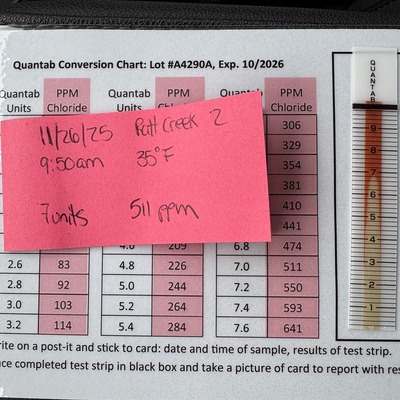 Quantab Conversion Chart: Lot #A4290A, Exp. 10/2026
Quantab Units PPM Chloride Quantab Units PPM Chloride PPM Chloride
11/26/25 Patt Creek 2
9:50am 35°F
7units 511 ppm
306
329
354
381
410
441
209 6.8 474
2.6 83 4.8 226 7.0 511
2.8 92 5.0 244 7.2 550
3.0 103 5.2 264 7.4 593
3.2 114 5.4 284 7.6 641
rite on a post-it and stick to card: date and time of sample, results of test strip.
ce completed test strip in black box and take a picture of card to report with res
QUANTAB
9
8
7
6
5
4
3
2
1